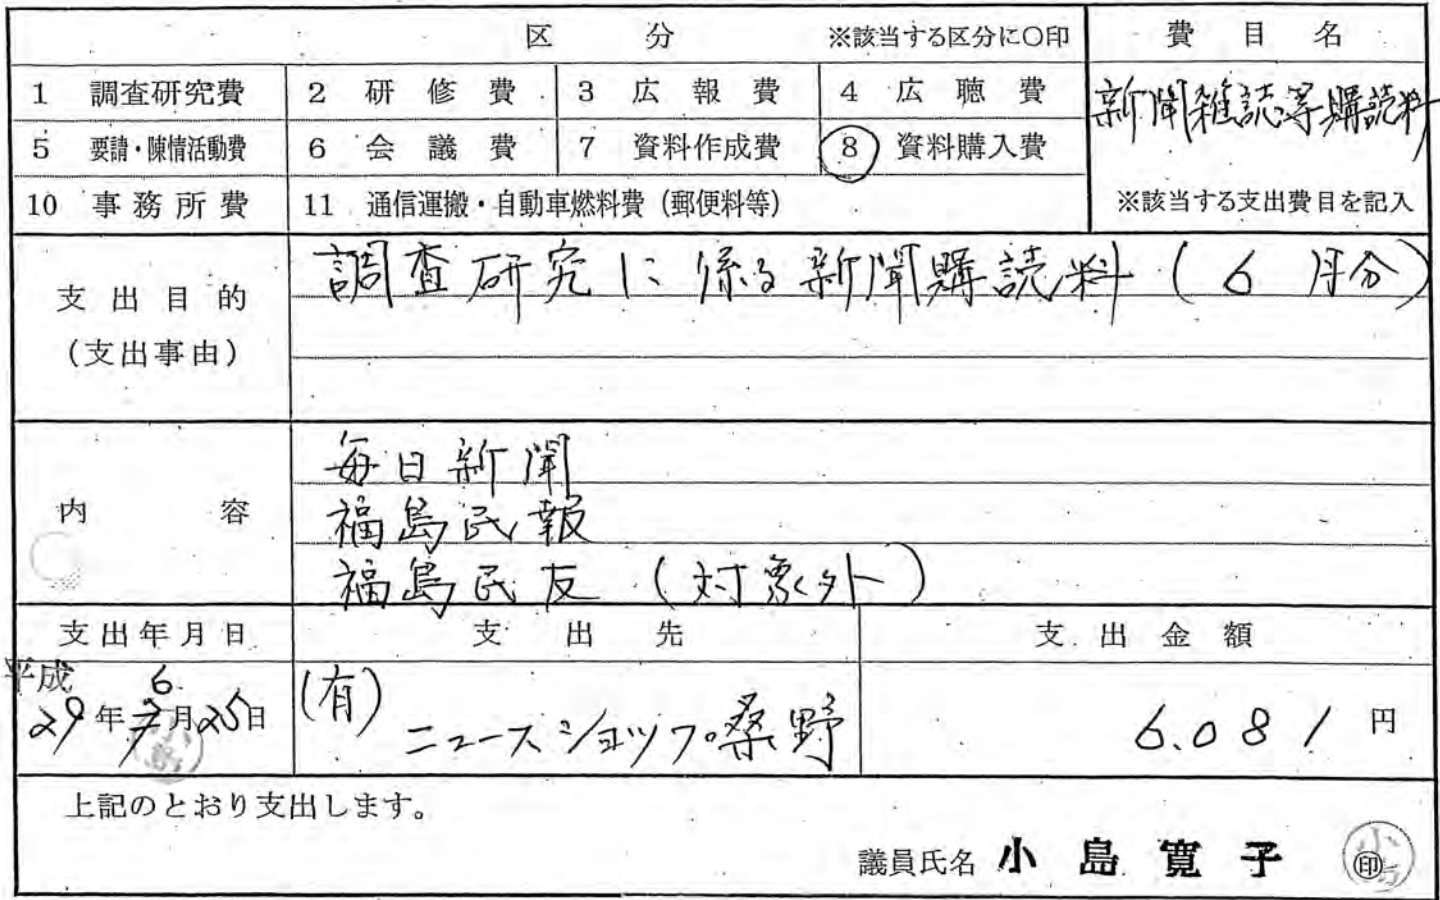 区 分 ※該当する区分に〇印 費 目 名
1 調査研究費 2 研 修 費 3 広 報 費 4 広 聴 費 新聞雑誌等購読料
5 要請・陳情活動費 6 会 議 費 7 資料作成費 8 資料購入費
10 事 務 所 費 11 通信運搬・自動車燃料費 (郵便料等) ※該当する支出費目を記入
支 出 目 的 調査研究に係る新聞購読料 (6 月分)
(支出事由)
毎日新聞
内 容 福島民報
福島民友 (対象外)
支出年月日 支 出 先 支 出 金 額
平成 6
29年 月25日 (有) ニュースショップ桑野 6.081 円
上記のとおり支出します。
議員氏名 小 島 寛 子 印 小島